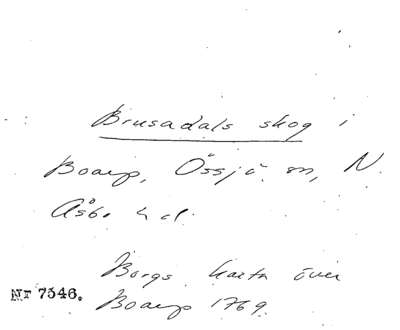 Brusadals skog i
Boarp, Össjö sn, N.
Åsbo hd.
Borgs karta över
Nr 7546. Boarp 1769.